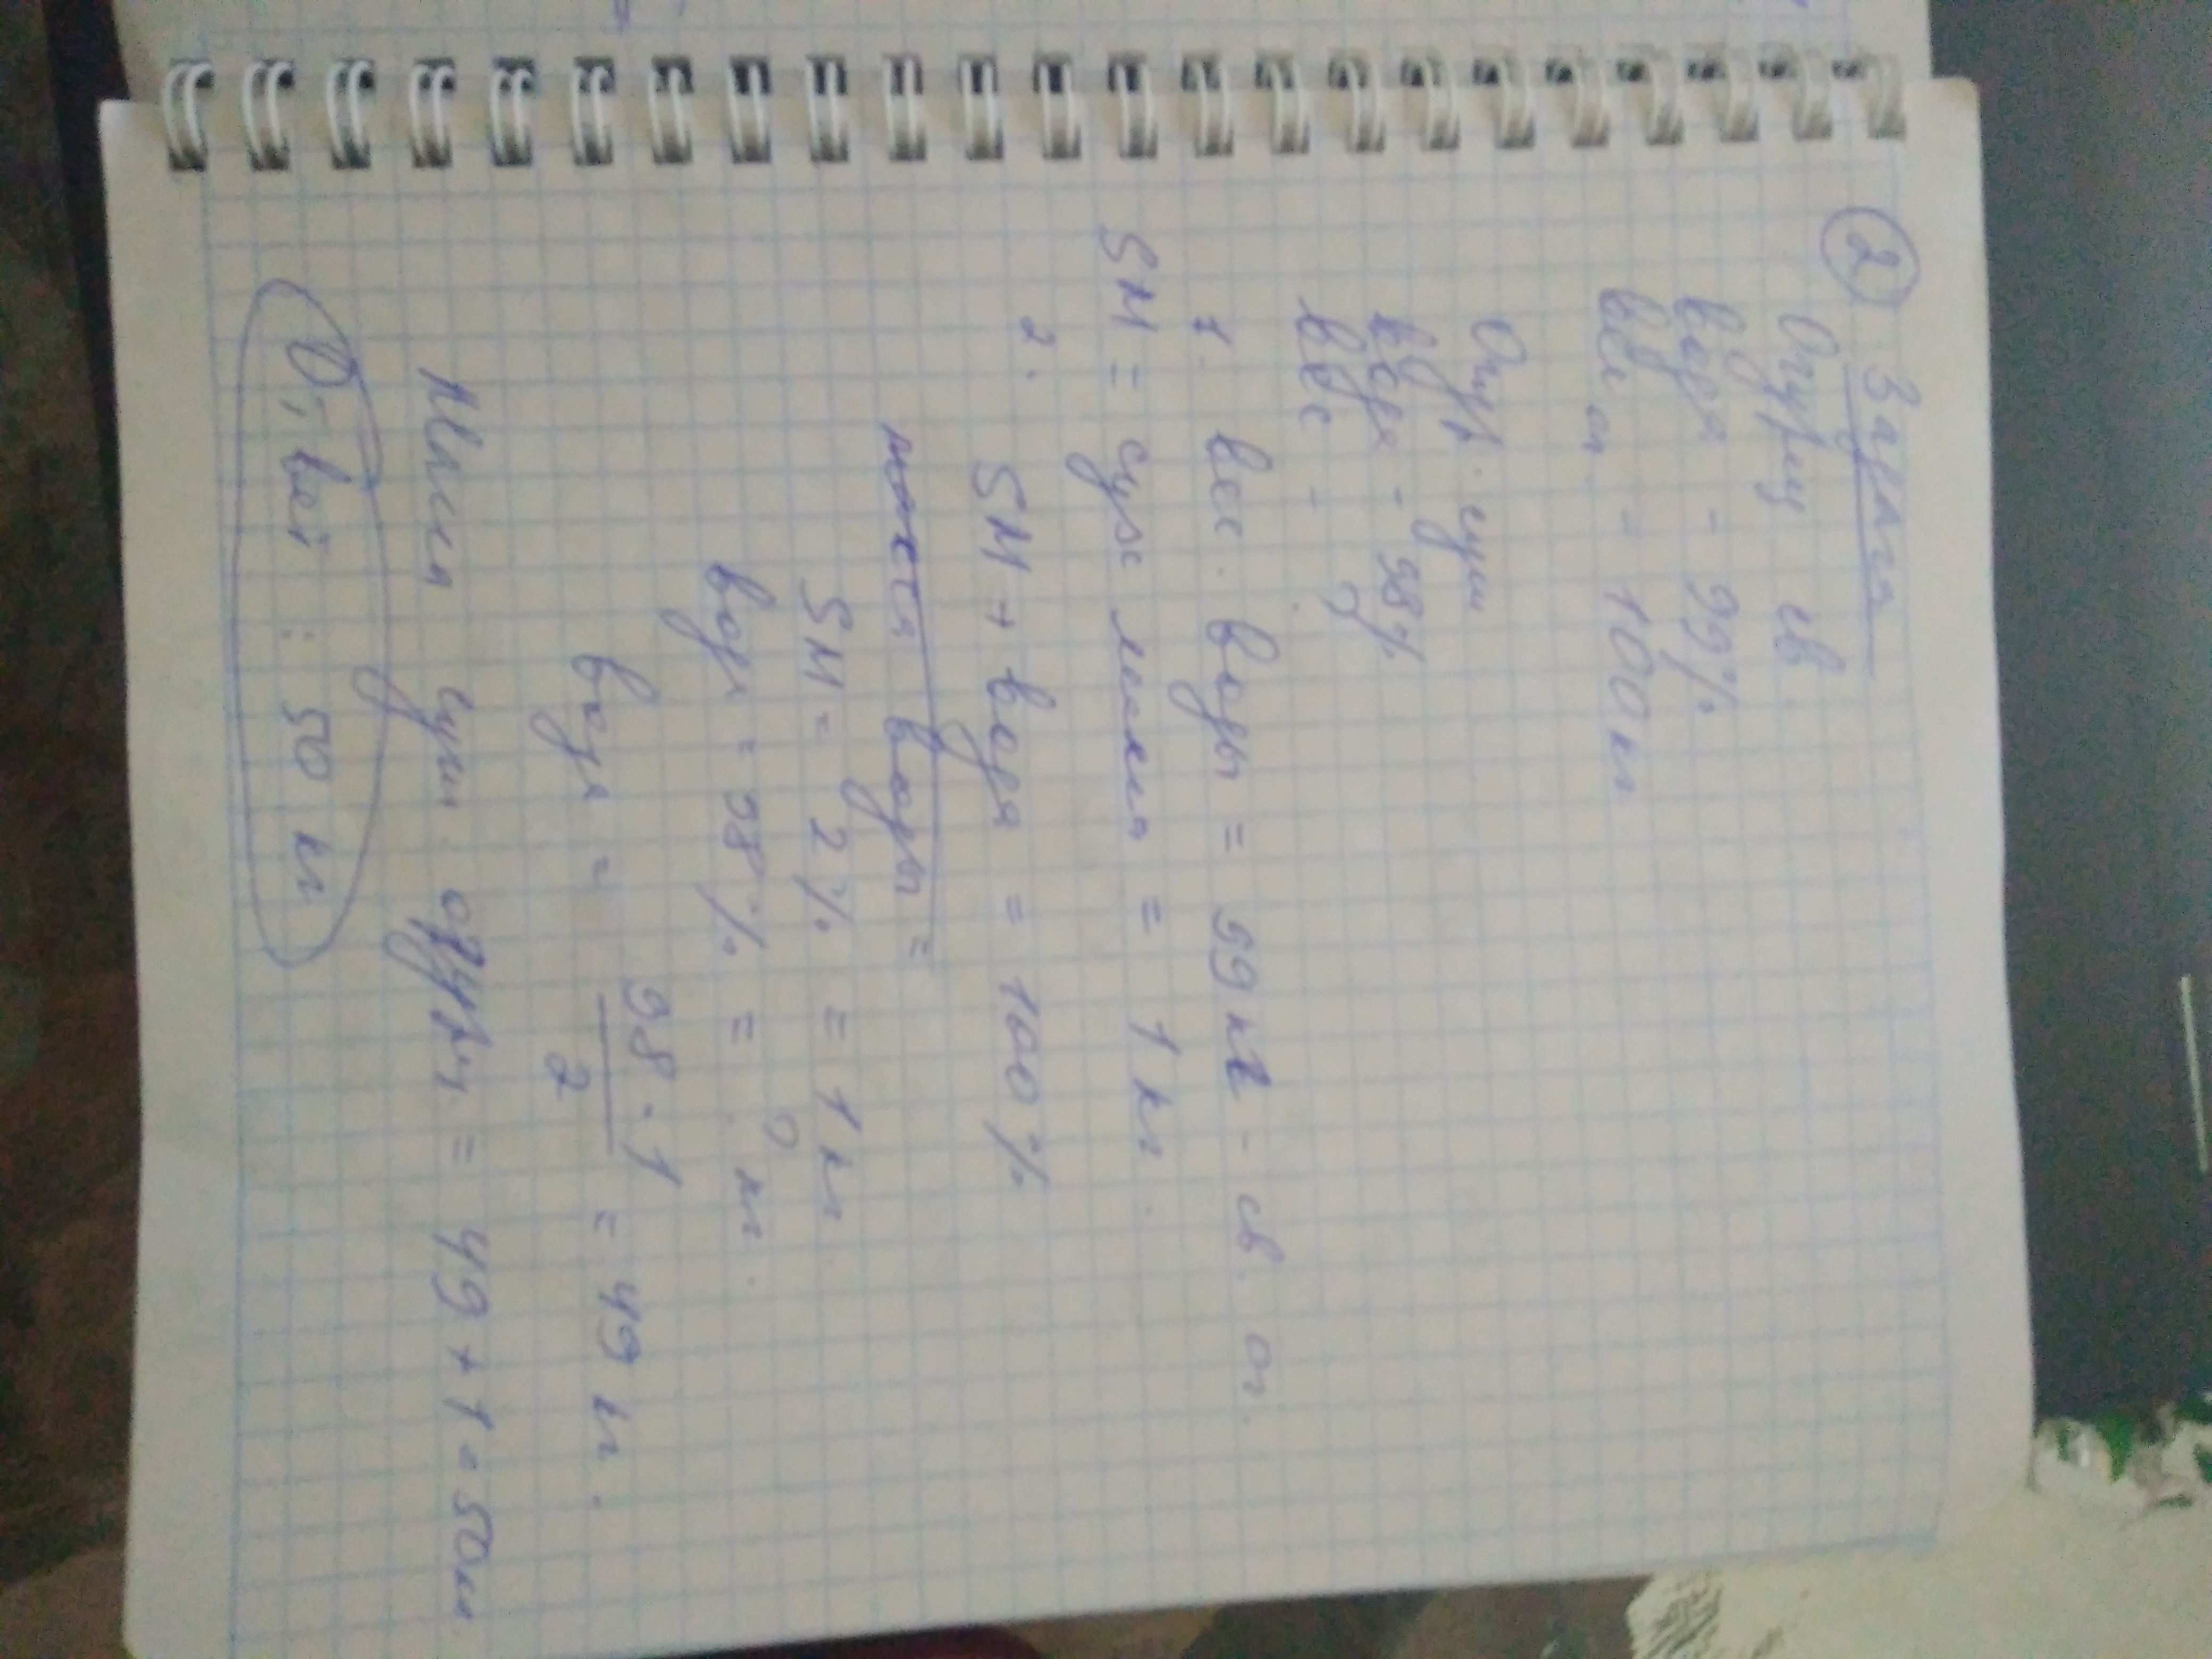 ② Задача
Огурцы св.
вода - 99%
вес ог. = 100 кг
Огур. суш
вода - 98%
вес - ?
1. вес. воды = 99 кг - св. ог.
SM = сух масса = 1 кг.
2. SM + вода = 100%
масса воды =
SM = 2% = 1 кг
вода = 98% = ? кг.
вода = 98·1/2 = 49 кг.
Масса суш. огурцы = 49 + 1 = 50кг.
Ответ : 50 кг